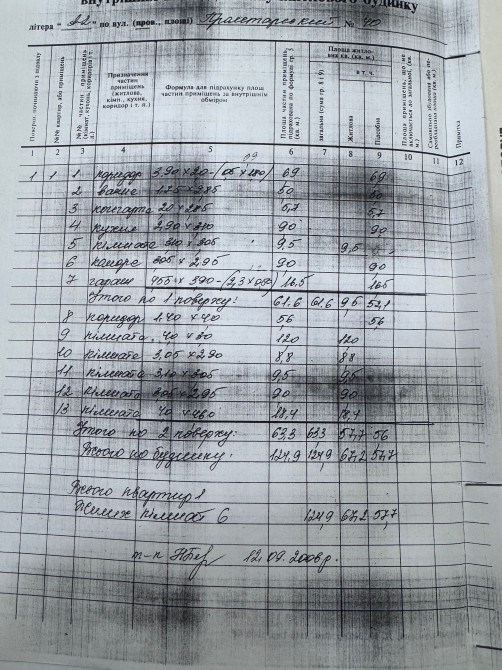 внутрішніх будинку
літера „А2“ по вул. (пров., площі) Пролетарський № 40
Поверхи, починаючи з підвалу
№№ квартир, або приміщень
№№ частин приміщень (кімнат, кухонь, коридорів і т. п.)
Призначення частин приміщень (житлова, кімн., кухня, коридор і т. п.)
Формула для підрахунку площ частин приміщень за внутрішнім обміром
Площа частин приміщень, підрахована по формулі гр. 5 (кв. м.)
Площа житлових кв. (кв. м.)
загальна (сума гр. 8 і 9)
в т. ч.
Житлова
Підсобна
Площа приміщень, що не включається до загальної, (кв. м.)
Самовільно збудована або переобладнана площа (кв. м.)
Примітка
1 2 3 4 5 6 7 8 9 10 11 12
1 1 1 коридор 6,9 6,9
2 ванна 1.75 x 2.85 5,0 5,0
3 2,0 x 2.85 5,7 5,7
4 кухня 2,90 x 3.10 9,0 9,0
5 кімната 3.10 x 3.05 9,5 9,5
6 3.05 x 2,95 9,0 9,0
7 гараж 16,5 16,5
Итого по 1 поверху: 61.6 61.6 9,5 52,1
8 коридор 1.40 x 4,0 5,6 5,6
9 кімната 12,0 12,0
10 кімната 3,05 x 2.90 8,8 8,8
11 кімната 3.10 x 3.05 9,5 9,5
12 кімната 3.05 x 2.95 9,0 9,0
13 кімната 4,0 x 4.60 18,4 18,4
Итого по 2 поверху: 63,3 63,3 57,7 5,6
Всього по будинку: 124,9 124,9 67,2 57,7
Всього квартир 1
Жилих кімнат 6 124,9 67,2 57,7
т-к 12.09.2008р.